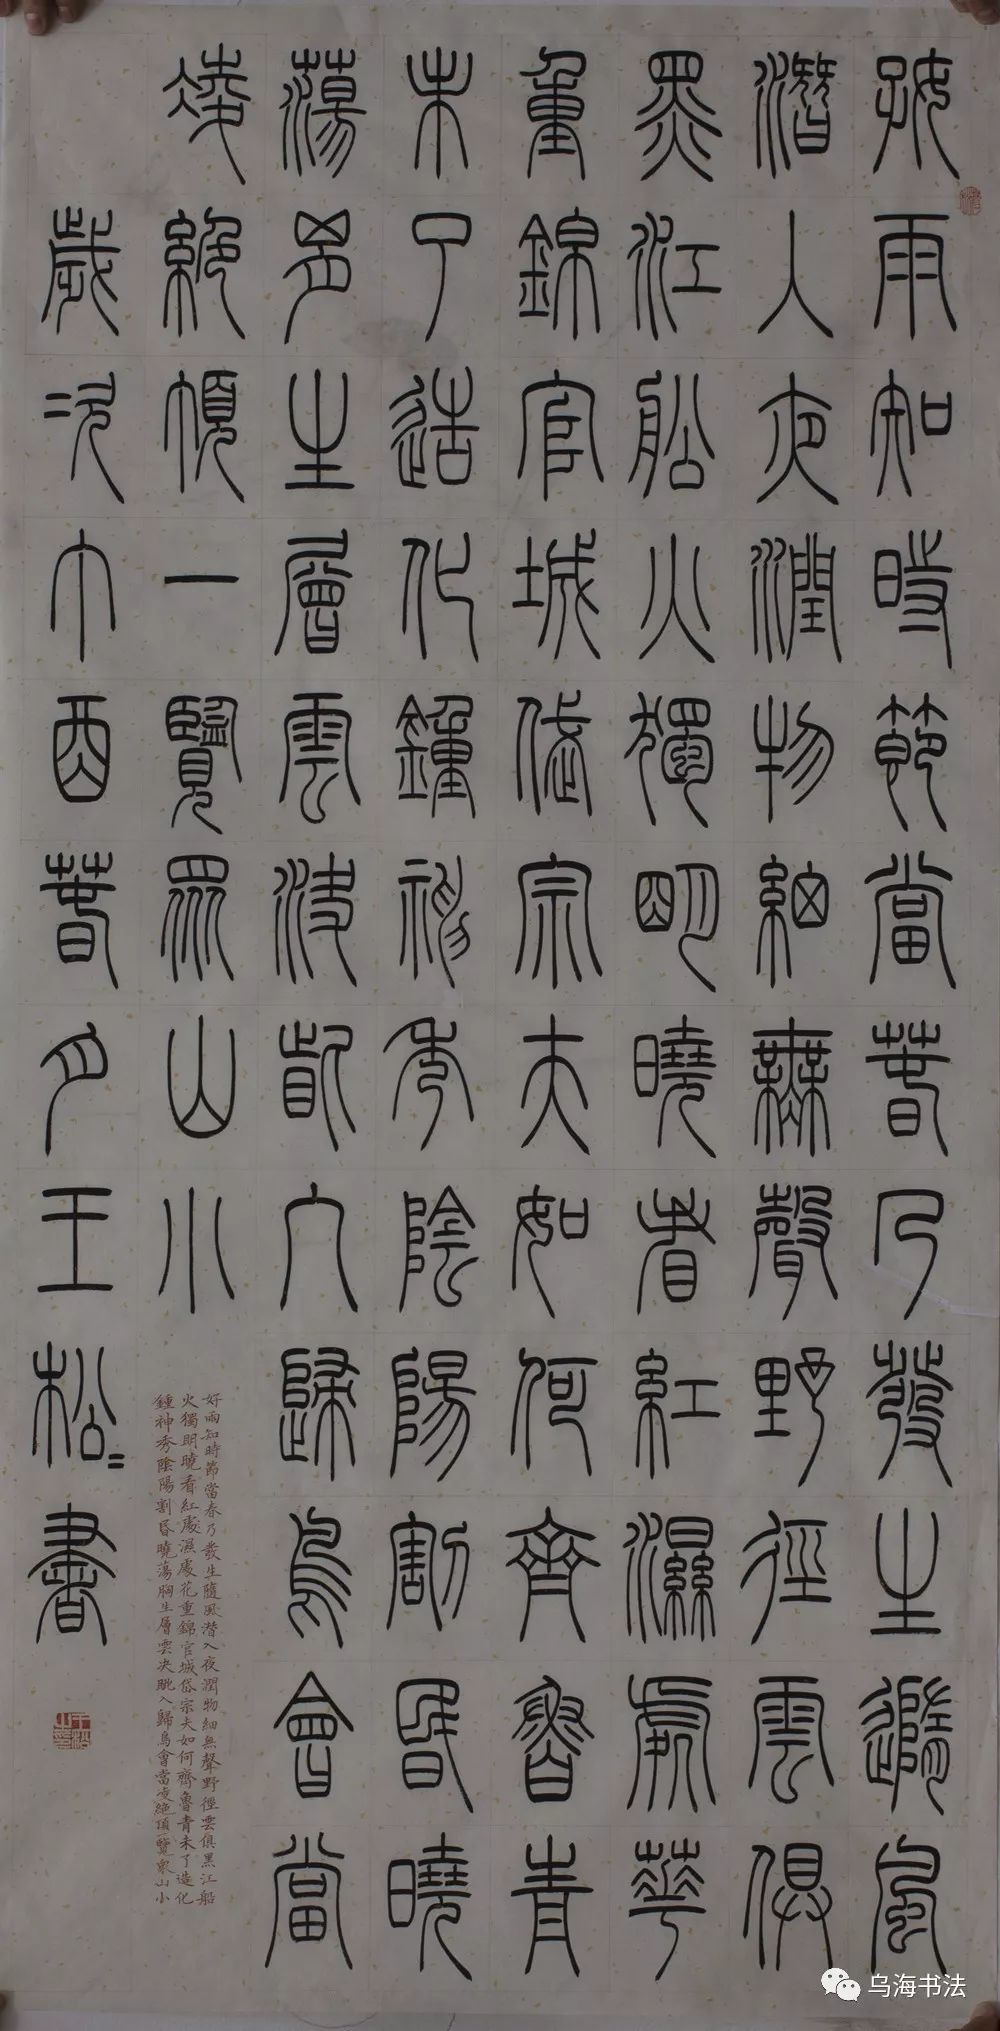 好雨知時節當春乃發生隨風
潛入夜潤物細無聲野徑雲俱
黑江船火獨明曉看紅濕處華
重錦官城岱宗夫如何齊魯青
未了造化鍾神秀陰陽割昏曉
蕩匈生層雲決眥入歸鳥會當
凌絕頂一覽眾山小
好雨知時節當春乃發生隨風潛入夜潤物細無聲野徑雲俱黑江船
火獨明曉看紅處濕處花重錦官城岱宗夫如何齊魯青未了造化
鍾神秀陰陽割昏曉蕩胸生層雲決眦入歸鳥會當凌絕頂一覽衆山小
歲次丁酉春月王松〻書
乌海书法